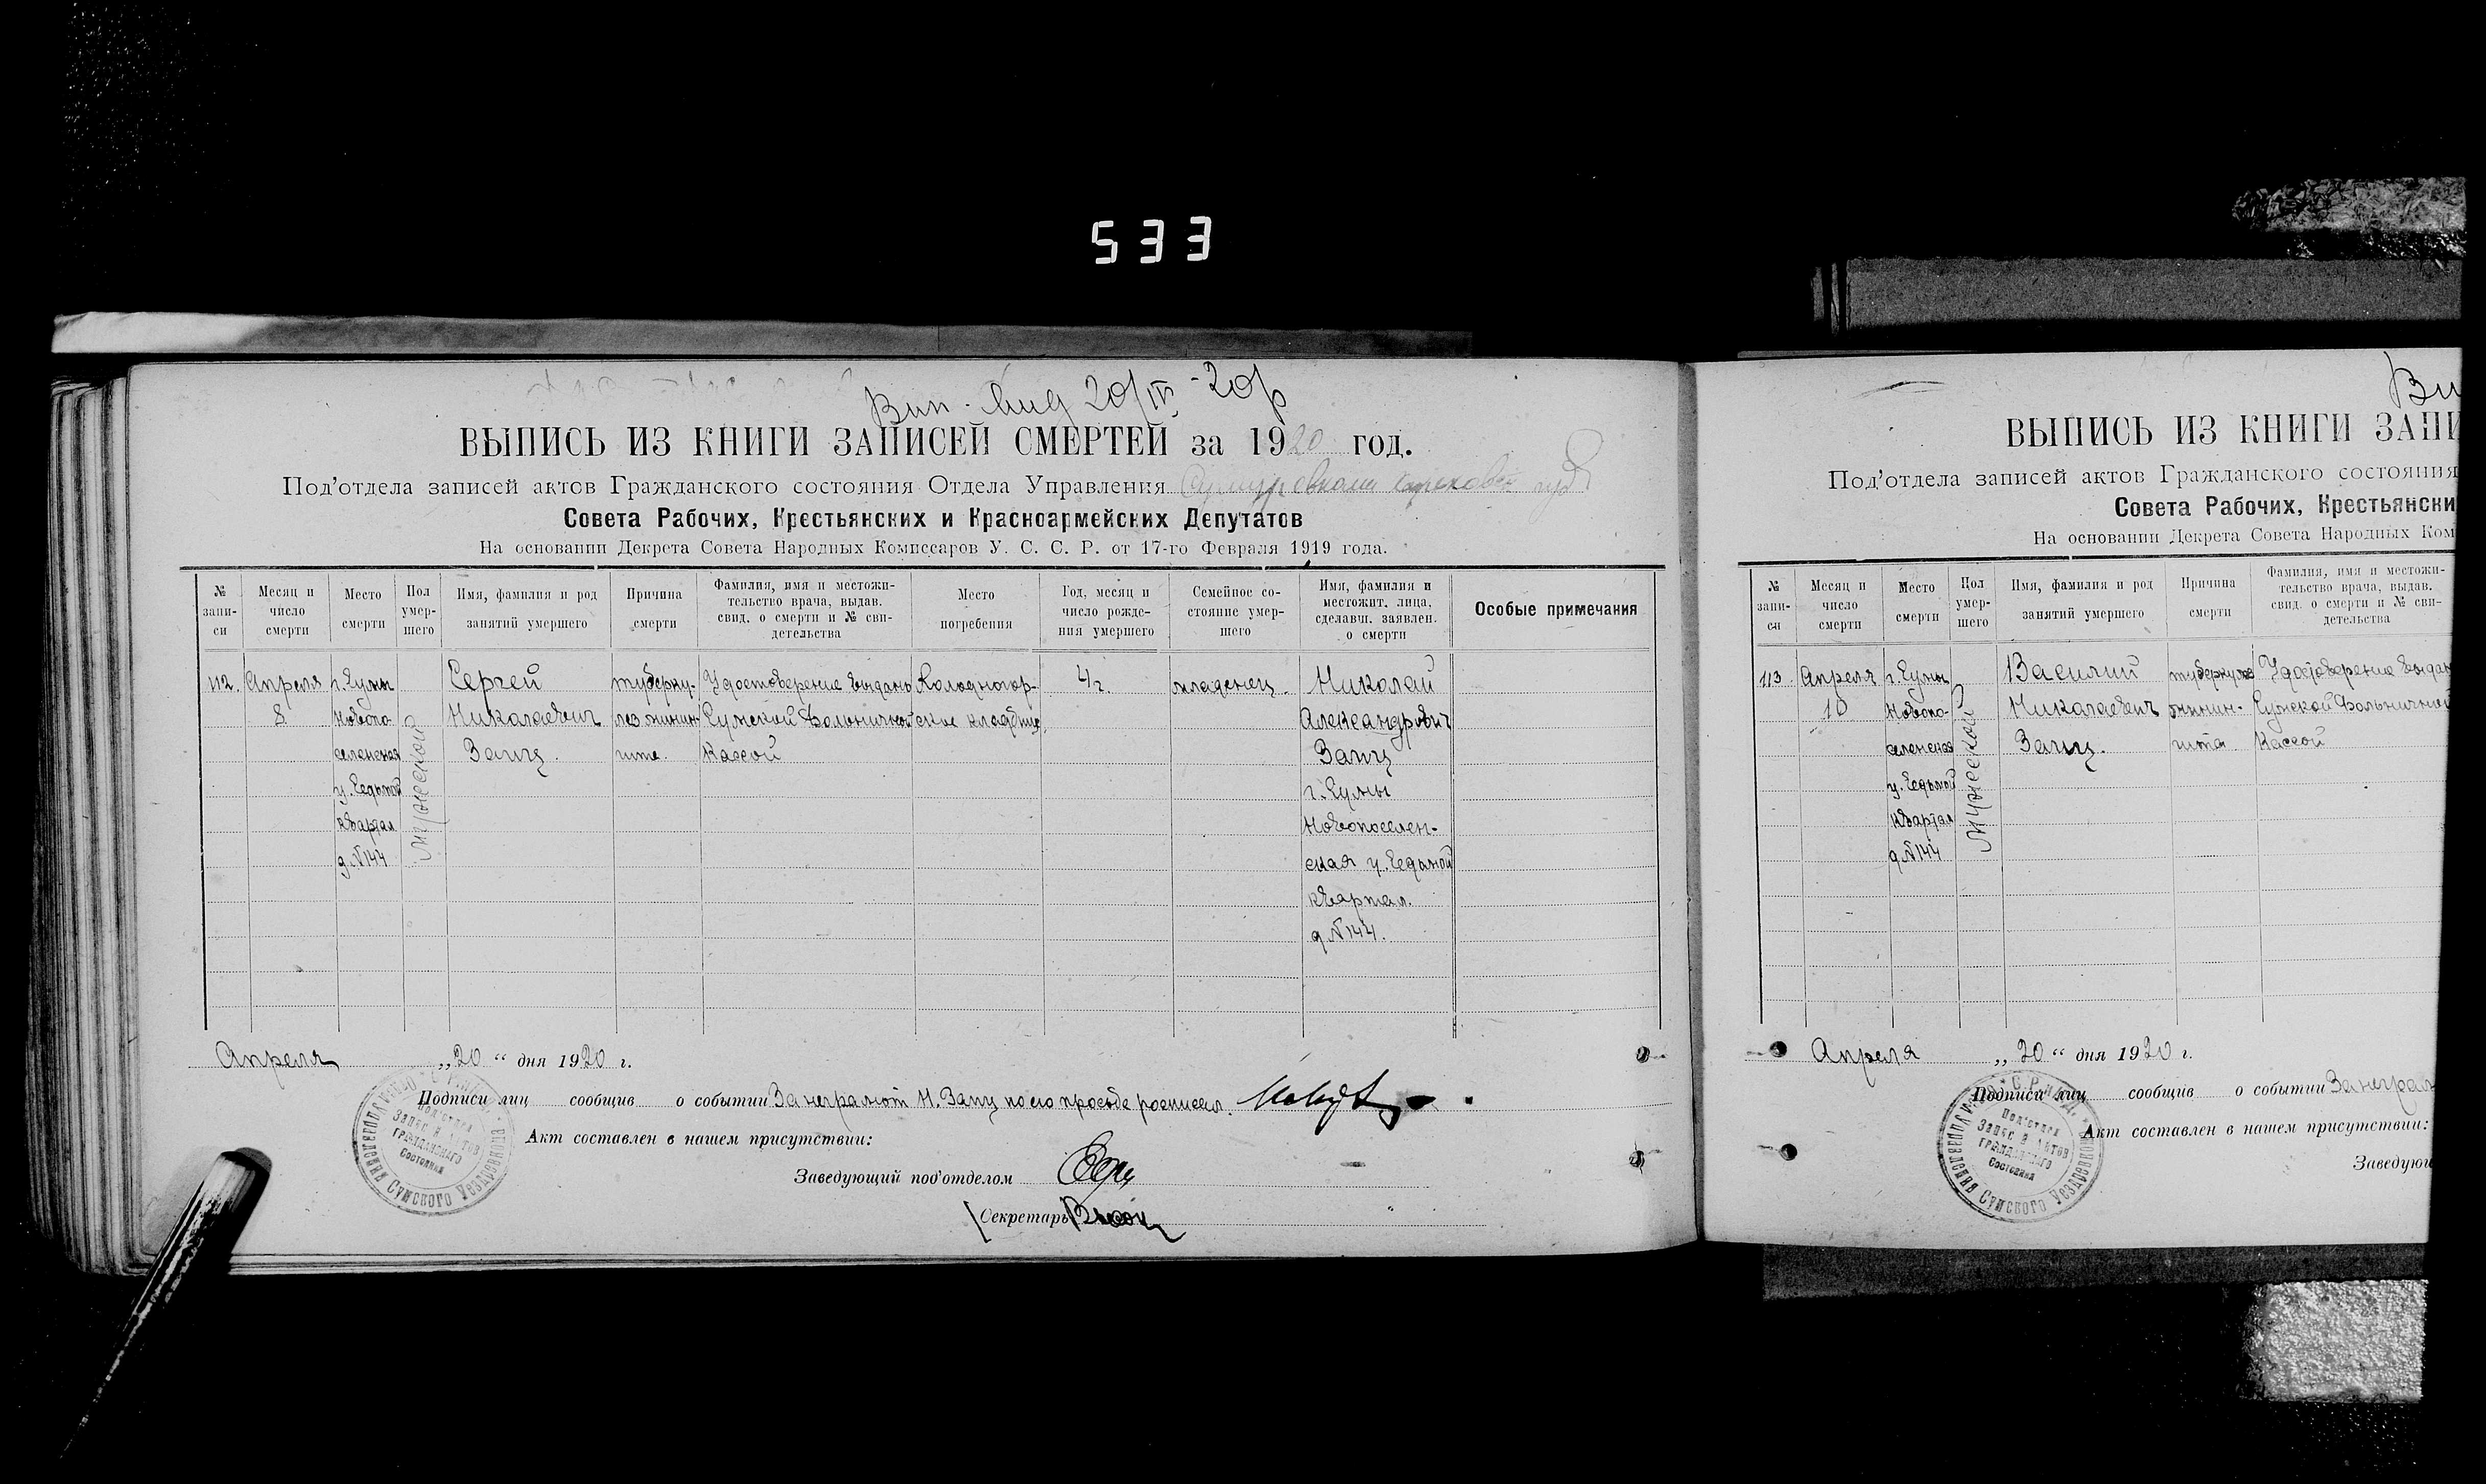 533
20/IV-20р
ВЫПИСЬ ИЗ КНИГИ ЗАПИСЕЙ СМЕРТЕЙ за 1920 год.
Под'отдела записей актов Гражданского состояния Отдела Управления
Совета Рабочих, Крестьянских и Красноармейских Депутатов
На основании Декрета Совета Народных Комиссаров У. С. С. Р. от 17-го Февраля 1919 года.
№ запи-си
Месяц и число смерти
Место смерти
Пол умер-шего
Имя, фамилия и род занятий умершего
Причина смерти
Фамилия, имя и местожи-тельство врача, выдав. свид. о смерти и № сви-детельства
Место погребения
Год, месяц и число рожде-ния умершего
Семейное со-стояние умер-шего
Имя, фамилия и местожит. лица, сделавш. заявлен. о смерти
Особые примечания
112.
Апреля
8
г. Сумы
Новопо-
селенская
у. Седьмой
квартал
д. №144
Мужеской
Сергей
Николаевич
Заиц.
туберку-
лез минин-
гите.
Удостоверение выдано
Сумской Больничной
Кассой
Холодногор-
ское кладбище
4 г.
младенец.
Николай
Александрович
Заиц
г. Сумы
Новопоселен-
ская у. Седьмой
квартал.
д. №144.
Апреля „20“ дня 1920 г.
Подписи лиц сообщив о событии За неграмот Н. Заиц по его просьбе росписал.
Акт составлен в нашем присутствии:
Заведующий под'отделом
Секретарь
Под'отдел
Записей Актов
Гражданского
Состояния
Сумского Уездревкома
ВЫПИСЬ ИЗ КНИГИ ЗАПИ
Под'отдела записей актов Гражданского состояния
Совета Рабочих, Крестьянски
На основании Декрета Совета Народных Ком
№ запи-си
Месяц и число смерти
Место смерти
Пол умер-шего
Имя, фамилия и род занятий умершего
Причина смерти
Фамилия, имя и местожи-тельство врача, выдав. свид. о смерти и № сви-детельства
113
Апреля
10
г. Сумы
Новопо-
селенская
у. Седьмой
квартал
д. №144
Мужеской
Василий
Николаевич
Заиц.
туберкулез
минин-
гита
Удостоверение выдан
Сумской Больничной
Кассой
Апреля „20“ дня 1920 г.
Подписи лиц сообщив о событии За неграм
Акт составлен в нашем присутствии:
Заведую
Под'отдел
Записей Актов
Гражданского
Состояния
Сумского Уездревкома